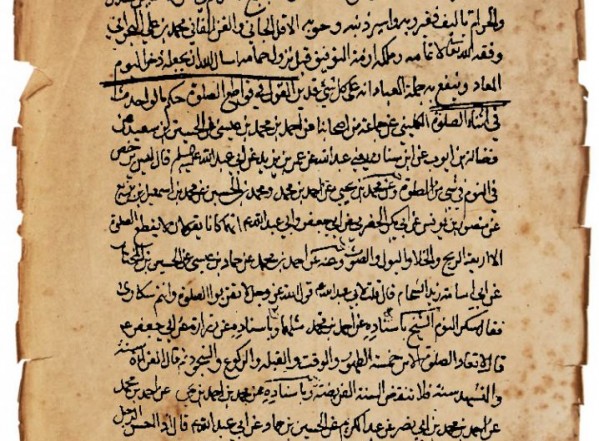 والحرام تأليف فقير ربه واسير ذنبه وحوبه الاقل الجاني والقن القاني محمد بن علي
وفقه الله تعالى لاتمامه اسال الله ان يجعله ذخرا ليوم
المعاد وينفع به جملة العباد انه على كل شي قدير القول في قواطع الصلوة حكم الواحدث
في اثناء الصلوة الكليني عن جماعة من اصحابنا عن احمد بن محمد بن عيسى عن الحسين بن سعيد عن
فضالة بن ايوب عن ابن سنان يعني عبد الله عن عمر بن يزيد عن ابي عبد الله عليه السلم قال ليس يرخص
في النوم في شي من الصلوة وعن محمد بن يحيى عن احمد بن محمد ومحمد بن الحسين عن محمد بن اسمعيل بن بزيع
عن منصور بن يونس عن ابي بكر الحضرمي عن ابي جعفر وابي عبد الله انهما كانا يقولان لا يقطع الصلوة
الا اربعة الريح والخلا والبول والصوت وعنه عن احمد بن محمد عن حماد بن عيسى عن الحسين بن المختار
عن ابي اسامة زيد الشحام قال قلت لابي عبد الله قول الله عز وجل لا تقربوا الصلوة وانتم سكارى
فقال سكر النوم الشيخ باسناده عن احمد بن محمد مثله وباسناده عن زرارة عن ابي جعفر
قال لا تعاد الصلوة الا من خمسة الطهور والوقت والقبلة والركوع والسجود ثم قال القراءة سنة
والتشهد سنة فلا تنقض السنة الفريضة وباسناده عن محمد بن احمد بن يحيى عن احمد بن محمد
عن احمد بن محمد بن ابي نصر عن عبد الكريم عن الحسين بن حماد عن ابي عبد الله قال اذا احس الرجل